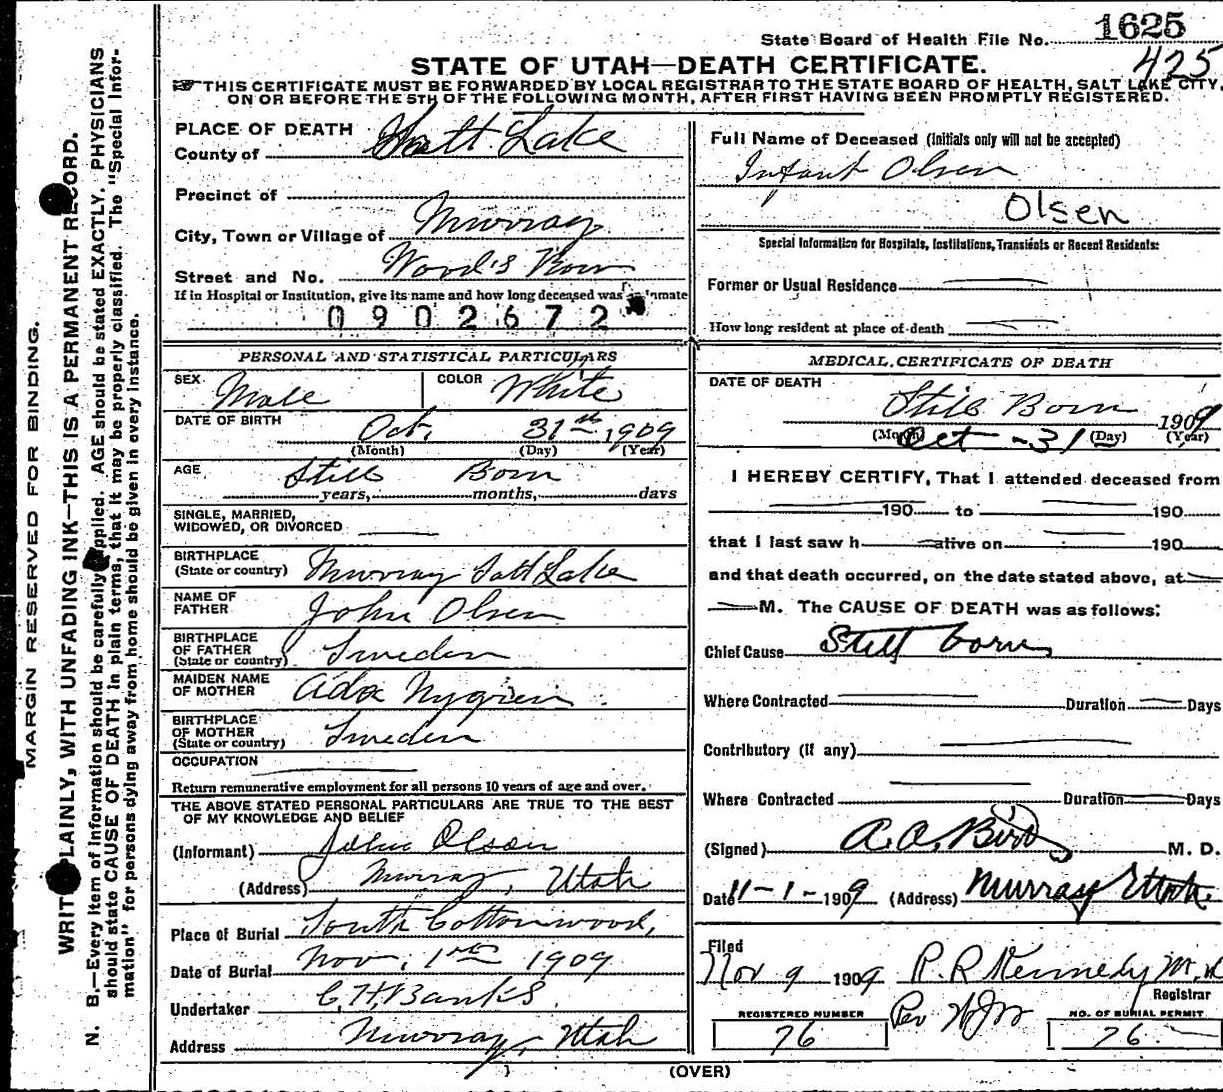 1625
State Board of Health File No.
425
STATE OF UTAH—DEATH CERTIFICATE.
THIS CERTIFICATE MUST BE FORWARDED BY LOCAL REGISTRAR TO THE STATE BOARD OF HEALTH, SALT LAKE CITY,
ON OR BEFORE THE 5TH OF THE FOLLOWING MONTH, AFTER FIRST HAVING BEEN PROMPTLY REGISTERED.
MARGIN RESERVED FOR BINDING.
WRITE PLAINLY, WITH UNFADING INK—THIS IS A PERMANENT RECORD.
N. B.—Every item of information should be carefully supplied. AGE should be stated EXACTLY. PHYSICIANS
should state CAUSE OF DEATH in plain terms, that it may be properly classified. The "Special Infor-
mation" for persons dying away from home should be given in every instance.
PLACE OF DEATH
County of Salt Lake
Precinct of
City, Town or Village of Murray
Street and No. Wood's Row
If in Hospital or Institution, give its name and how long deceased was inmate
0902672
PERSONAL AND STATISTICAL PARTICULARS
SEX Male COLOR White
DATE OF BIRTH Oct. 31st 1909
(Month) (Day) (Year)
AGE Still Born
years, months, days
SINGLE, MARRIED,
WIDOWED, OR DIVORCED
BIRTHPLACE
(State or country) Murray Salt Lake
NAME OF
FATHER John Olsen
BIRTHPLACE
OF FATHER
(State or country) Sweden
MAIDEN NAME
OF MOTHER Ada Nygrien
BIRTHPLACE
OF MOTHER
(State or country) Sweden
OCCUPATION
Return remunerative employment for all persons 10 years of age and over.
THE ABOVE STATED PERSONAL PARTICULARS ARE TRUE TO THE BEST
OF MY KNOWLEDGE AND BELIEF
(Informant) John Olson
(Address) Murray, Utah
Place of Burial South Cottonwood,
Date of Burial Nov. 1st 1909
Undertaker C. H. Banks.
Address Murray, Utah
Full Name of Deceased (Initials only will not be accepted)
Infant Olsen
Olsen
Special Information for Hospitals, Institutions, Transients or Recent Residents:
Former or Usual Residence
How long resident at place of death
MEDICAL CERTIFICATE OF DEATH
DATE OF DEATH
Still Born 1909
(Month) Oct - 31 (Day) (Year)
I HEREBY CERTIFY, That I attended deceased from
190 to 190
that I last saw h alive on 190
and that death occurred, on the date stated above, at
M. The CAUSE OF DEATH was as follows:
Chief Cause Still born
Where Contracted Duration Days
Contributory (If any)
Where Contracted Duration Days
(Signed) A. A. Bird M. D.
Date 11-1-1909 (Address) Murray Utah.
Filed
Nov 9 1909 P. R. Kennedy M. D.
Registrar
REGISTERED NUMBER
76
Per
NO. OF BURIAL PERMIT
76.
(OVER)